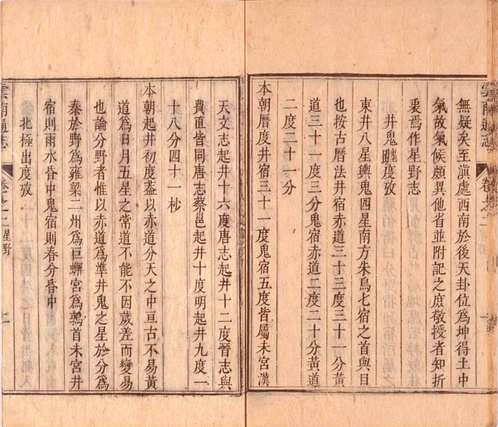 無疑矣至滇處西南於後天卦位為坤得土中
氣故氣候頗異他省並附記之庶敬授者知折
衷焉作星野志
井鬼躔度攷
東井八星輿鬼四星南方朱鳥七宿之首與目
也按古曆法井宿赤道三十三度三十一分黃
道三十一度三分鬼宿赤道二度二十分黃道
二度二十一分
本朝曆度井宿三十一度鬼宿五度皆屬未宮漢
雲南通志
雲南通志
卷之一 星野
天文志起井十六度唐志起十二度晉志與
費直皆同唐志蔡邕起井十度明起井九度一
十八分四十一秒
本朝起井初度蓋以赤道分天之中亘古不易黃
道為日月五星之常道不能不因歲差而變易
也論分野者惟以赤道為準井鬼之星於分為
秦於野為雍梁二州為巨蠏宮為鶉首未宮井
宿則雨水昏中鬼宿則春分昏中
北極出度攷